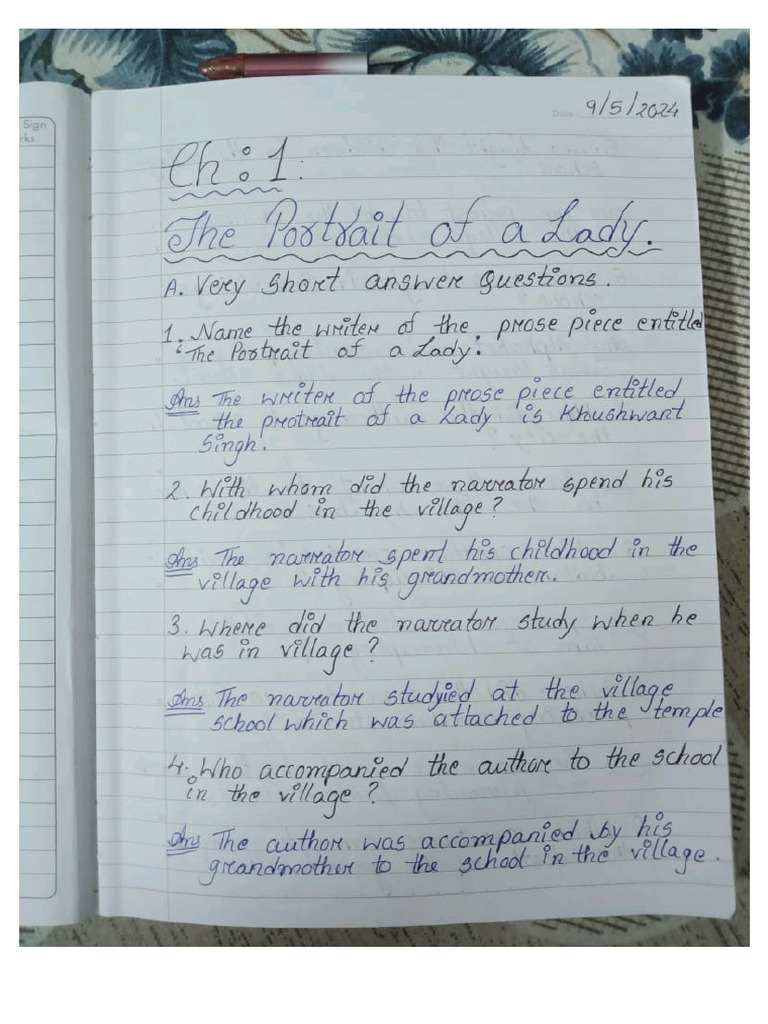 Sign
rks
Date
9/5/2024
Ch: 1:
The Portrait of a Lady.
A. Very short answer questions.
1. Name the writer of the prose piece entitled
'The Portrait of a Lady'.
Ans The writer of the prose piece entitled
the protrait of a Lady is Khushwant
Singh.
2. With whom did the narrator spend his
childhood in the village?
Ans The narrator spent his childhood in the
village with his grandmother.
3. Where did the narrator study when he
was in village?
Ans The narrator studyied at the village
school which was attached to the temple
4. Who accompanied the author to the school
in the village?
Ans The author was accompanied by his
grandmother to the school in the village.